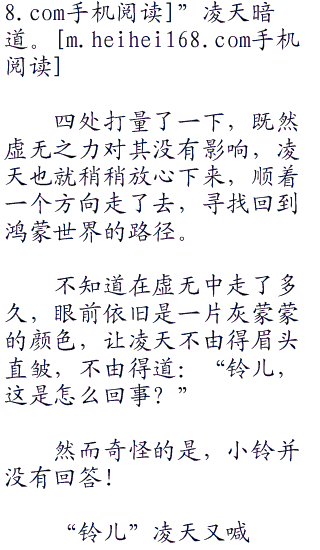 8.com手机阅读]”凌天暗
道。[m.heihei168.com手机
阅读]
四处打量了一下，既然
虚无之力对其没有影响，凌
天也就稍稍放心下来，顺着
一个方向走了去，寻找回到
鸿蒙世界的路径。
不知道在虚无中走了多
久，眼前依旧是一片灰蒙蒙
的颜色，让凌天不由得眉头
直皱，不由得道：“铃儿，
这是怎么回事？”
然而奇怪的是，小铃并
没有回答！
“铃儿”凌天又喊